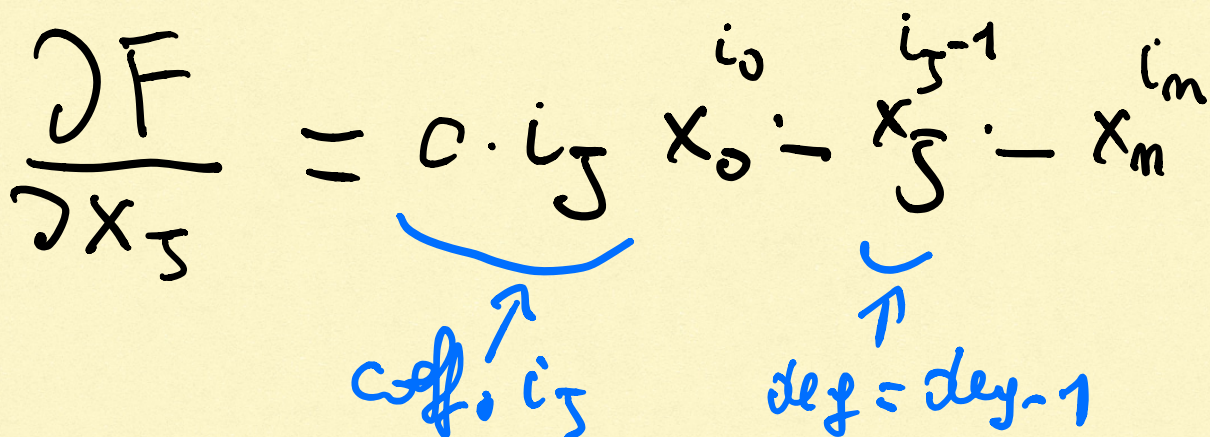 ∂F/∂x_J = c · i_J x_0^{i_0} ·– x_J^{i_J-1} ·– x_n^{i_n}
coeff. i_J deg = deg-1